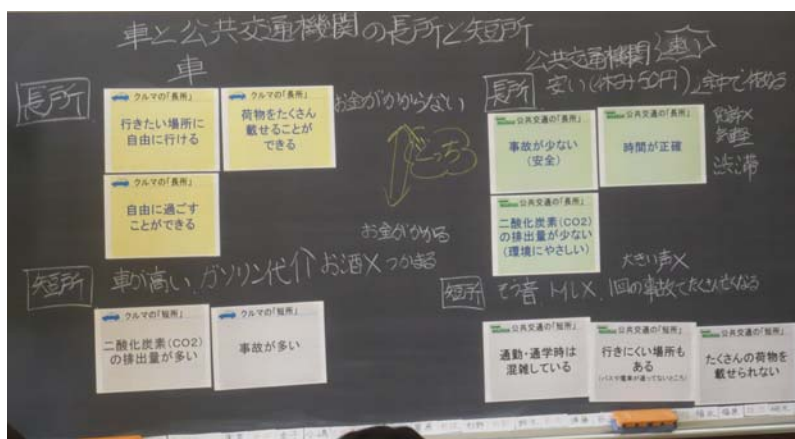 車と公共交通機関の長所と短所
車
長所
クルマの「長所」
行きたい場所に
自由に行ける
クルマの「長所」
荷物をたくさん
載せることが
できる
クルマの「長所」
自由に過ごす
ことができる
お金がかからない
どっち
お金がかかる
短所
車が高い、ガソリン代↑ お酒× つかまる
クルマの「短所」
二酸化炭素(CO2)
の排出量が多い
クルマの「短所」
事故が多い
公共交通機関
長所
安い(休み50円)
公共交通の「長所」
事故が少ない
(安全)
公共交通の「長所」
時間が正確
渋滞
公共交通の「長所」
二酸化炭素(CO2)
の排出量が少ない
(環境にやさしい)
大きい声×
短所
そう音
1回の事故でたくさん亡くなる
公共交通の「短所」
通勤・通学時は
混雑している
公共交通の「短所」
行きにくい場所も
ある
(バスや電車が通ってないところ)
公共交通の「短所」
たくさんの荷物を
載せられない